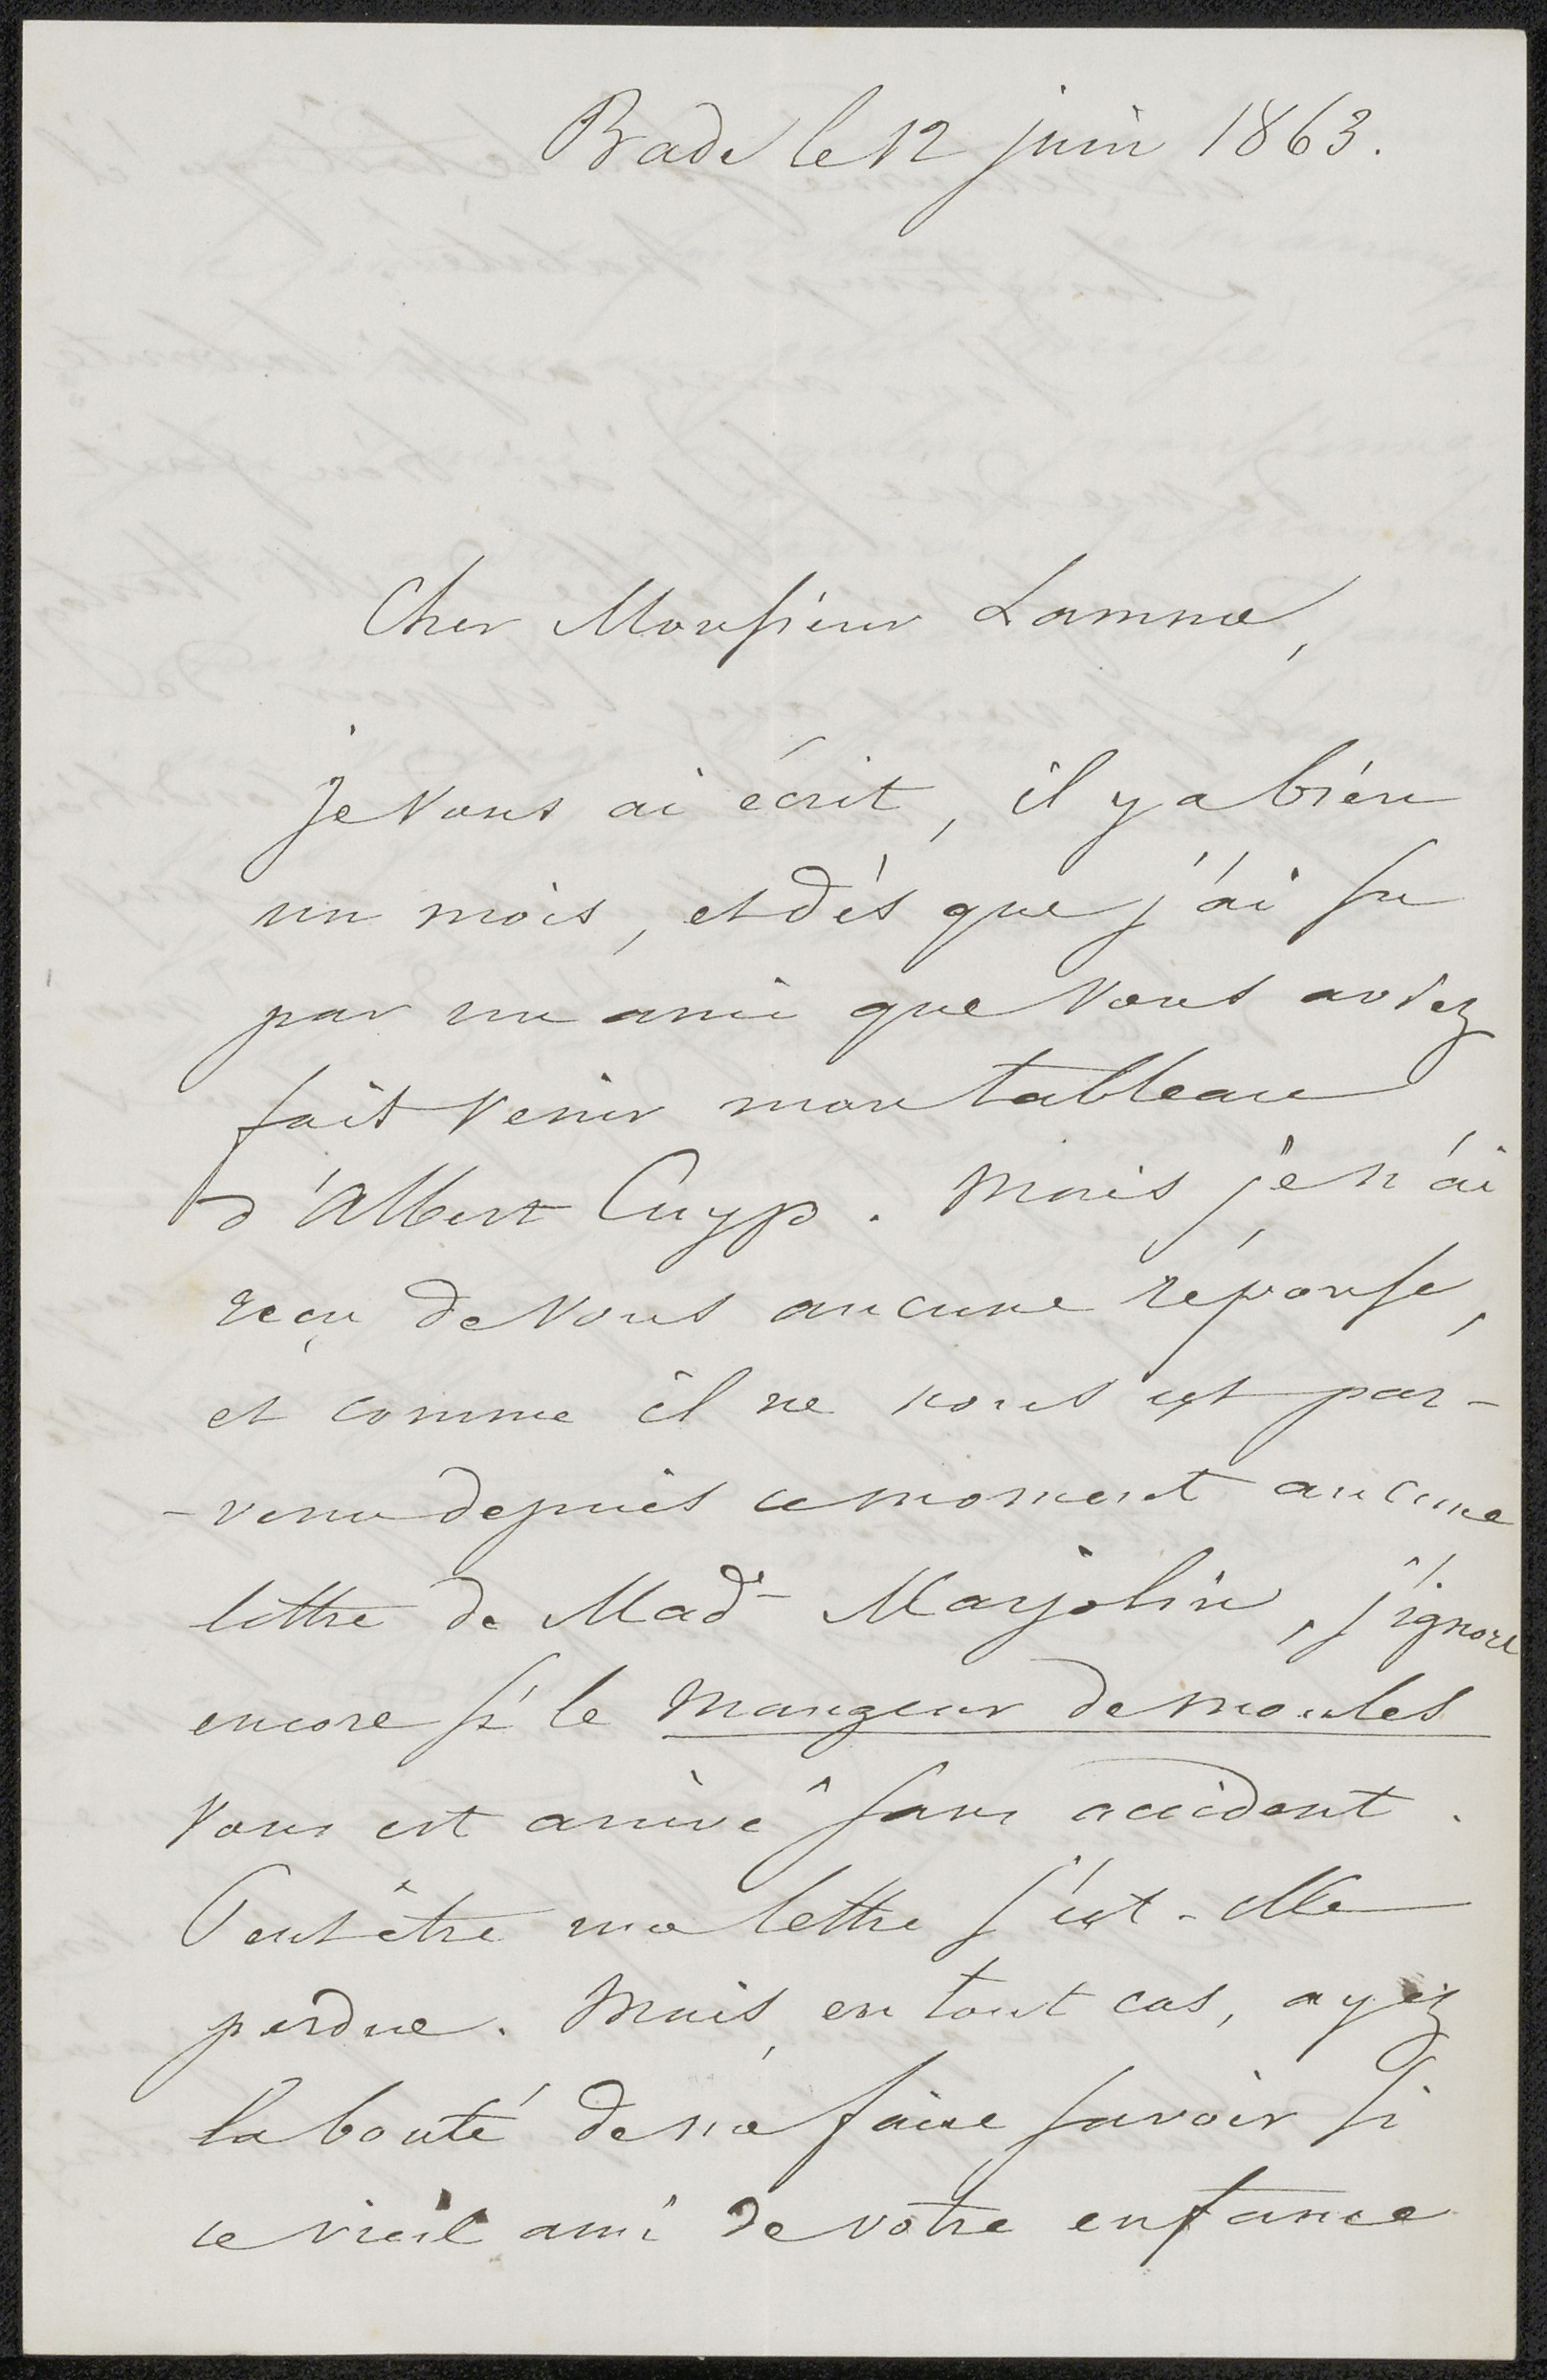 Bade le 12 juin 1863.
Cher Monsieur Lamme,
je vous ai écrit, il y a bien
un mois, et dès que j'ai su
par un ami que vous aviez
fait venir mon tableau
d'Albert Cuyp. Mais je n'ai
reçu de vous aucune réponse,
et comme il ne nous est par-
-venu depuis ce moment aucune
lettre de Made Marjolin, j'ignore
encore si le mangeur de moules
vous est arrivé sans accident.
Peut être ma lettre s'est-elle
perdue. Mais, en tout cas, ayez
la bonté de me faire savoir si
ce vieil ami de votre enfance